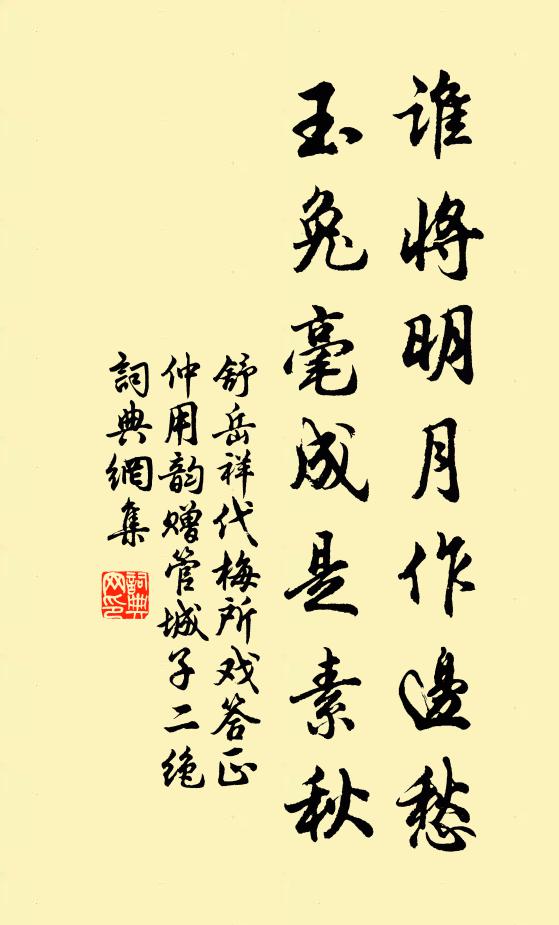 谁將明月作邊愁
玉兔毫成是素秋
舒岳祥代梅所戏答正
仲用韵赠管城子二绝
詞典網集
詞典
网印